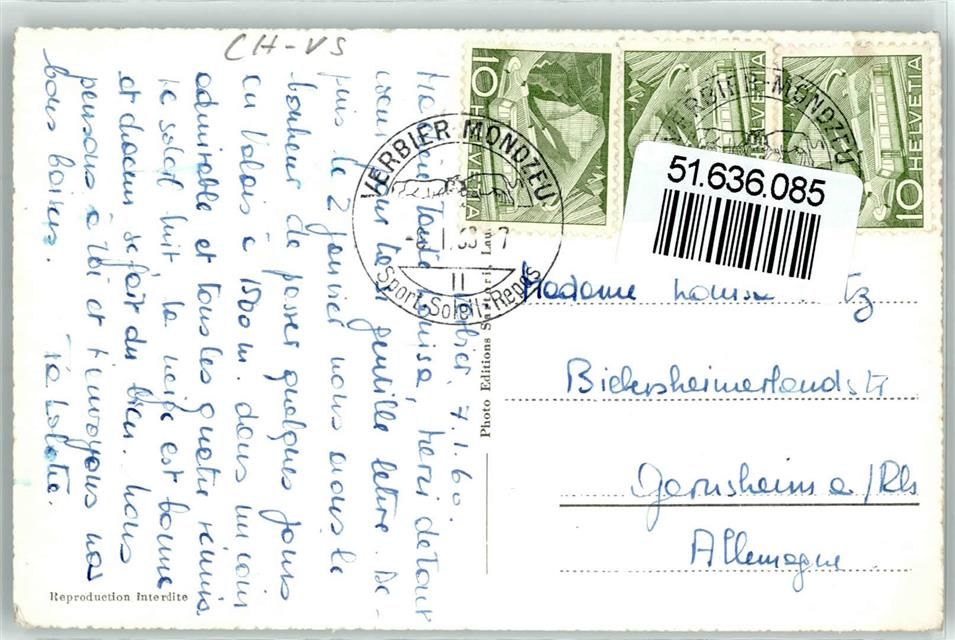 CH-VS
10 HELVETIA
HELVETIA
10 HELVETIA
VERBIER-MONDZEU
Sport-Soleil-Repos
VERBIER-MONDZEU
51.636.085
Verbier, 7.1.60.
Louisa, merci de tout
coeur pour ta gentille lettre. De-
puis le 2 janvier nous avons le
bonheur de passer quelques jours
en Valais à 1500 m. dans un coin
admirable et tous les quatre réunis.
Le soleil luit la neige est bonne
et chacun se fait du bien. Nous
pensons à toi et t'envoyons nos
bons baisers.
Photo Editions
Madame Louisa tz
Biebesheimerlandstr
Gernsheim a/Rh
Allemagne
Reproduction interdite